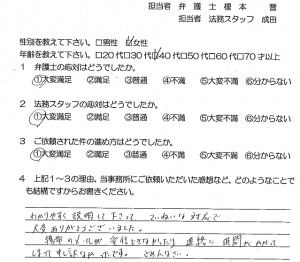 担当者 弁護士榎本 誉
担当者 法務スタッフ 成田
性別を教えて下さい。□男性 ☑女性
年代を教えて下さい。□20代□30代☑40代□50代□60代□70才以上
1 弁護士の応対はどうでしたか。
①大変満足 ②満足 ③普通 ④不満 ⑤大変不満 ⑥分からない
2 法務スタッフの応対はどうでしたか。
①大変満足 ②満足 ③普通 ④不満 ⑤大変不満 ⑥分からない
3 ご依頼された件の進め方はどうでしたか。
①大変満足 ②満足 ③普通 ④不満 ⑤大変不満 ⑥分からない
4 上記1~3の理由、当事務所にご依頼いただいた感想など、どのようなことで
も結構ですからお書きください。
わかりやすく説明して下さって、ていねいな対応で
大変ありがとうございました。
携帯のメールが受信できなかったり連絡に時間がかかって
しまって申し訳なかったです。すみません。